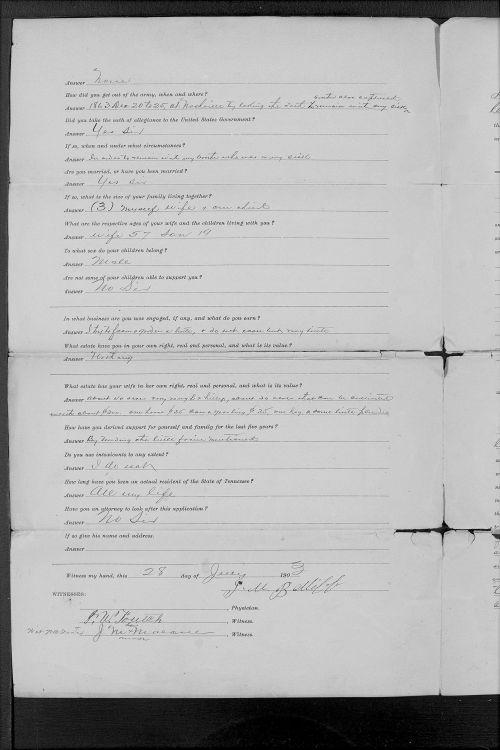 Answer None
How did you get out of the army, when and where?
Answer 1863 Dec 20 to 25, at Nashville By taking the oath to remain with my sick
brother also captured
Did you take the oath of allegiance to the United States Government?
Answer Yes Sir
If so, when and under what circumstances?
Answer In order to remain with my brother who was very sick
Are you married, or have you been married?
Answer Yes Sir
If so, what is the size of your family living together?
Answer (3.) myself wife & one child
What are the respective ages of your wife and the children living with you?
Answer wife 57 Son 19
To what sex do your children belong?
Answer Male
Are not some of your children able to support you?
Answer No Sir
In what business are you now engaged, if any, and what do you earn?
Answer I try to farm a little, & do not earn but very little
What estate have you in your own right, real and personal, and what is its value?
Answer Nothing
What estate has your wife in her own right, real and personal, and what is its value?
Answer about 20 acres very rough, about 20 acres that can be cultivated
worth about one horse $25 cow & yearling $25, one hog
How have you derived support for yourself and family for the last five years?
Answer By tending the little farm mentioned
Do you use intoxicants to any extent?
Answer I do not
How long have you been an actual resident of the State of Tennessee?
Answer All my life
Have you an attorney to look after this application?
Answer No Sir
If so give his name and address.
Answer
Witness my hand, this 28 day of 1903
J. M.
WITNESSES:
, Physician.
, Witness.
J. M. , Witness.